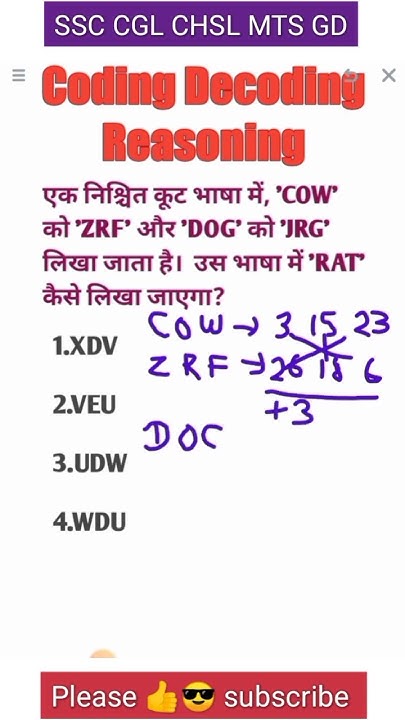 SSC CGL CHSL MTS GD
Coding Decoding
Reasoning
एक निश्चित कूट भाषा में, 'COW'
को 'ZRF' और 'DOG' को 'JRG'
लिखा जाता है। उस भाषा में 'RAT'
कैसे लिखा जाएगा?
COW → 3 15 23
1.XDV
ZRF → 26 18 6
+3
2.VEU
DOC
3.UDW
4.WDU
Please 👍😎 subscribe